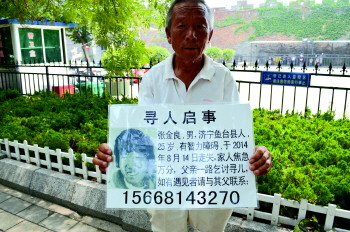 寻人启事
张金良，男，济宁鱼台县人，
25岁，有智力障碍，于2014
年8月14日走失，家人焦急
万分，父亲一路乞讨寻儿，
如有遇见者请与其父联系：
15668143270